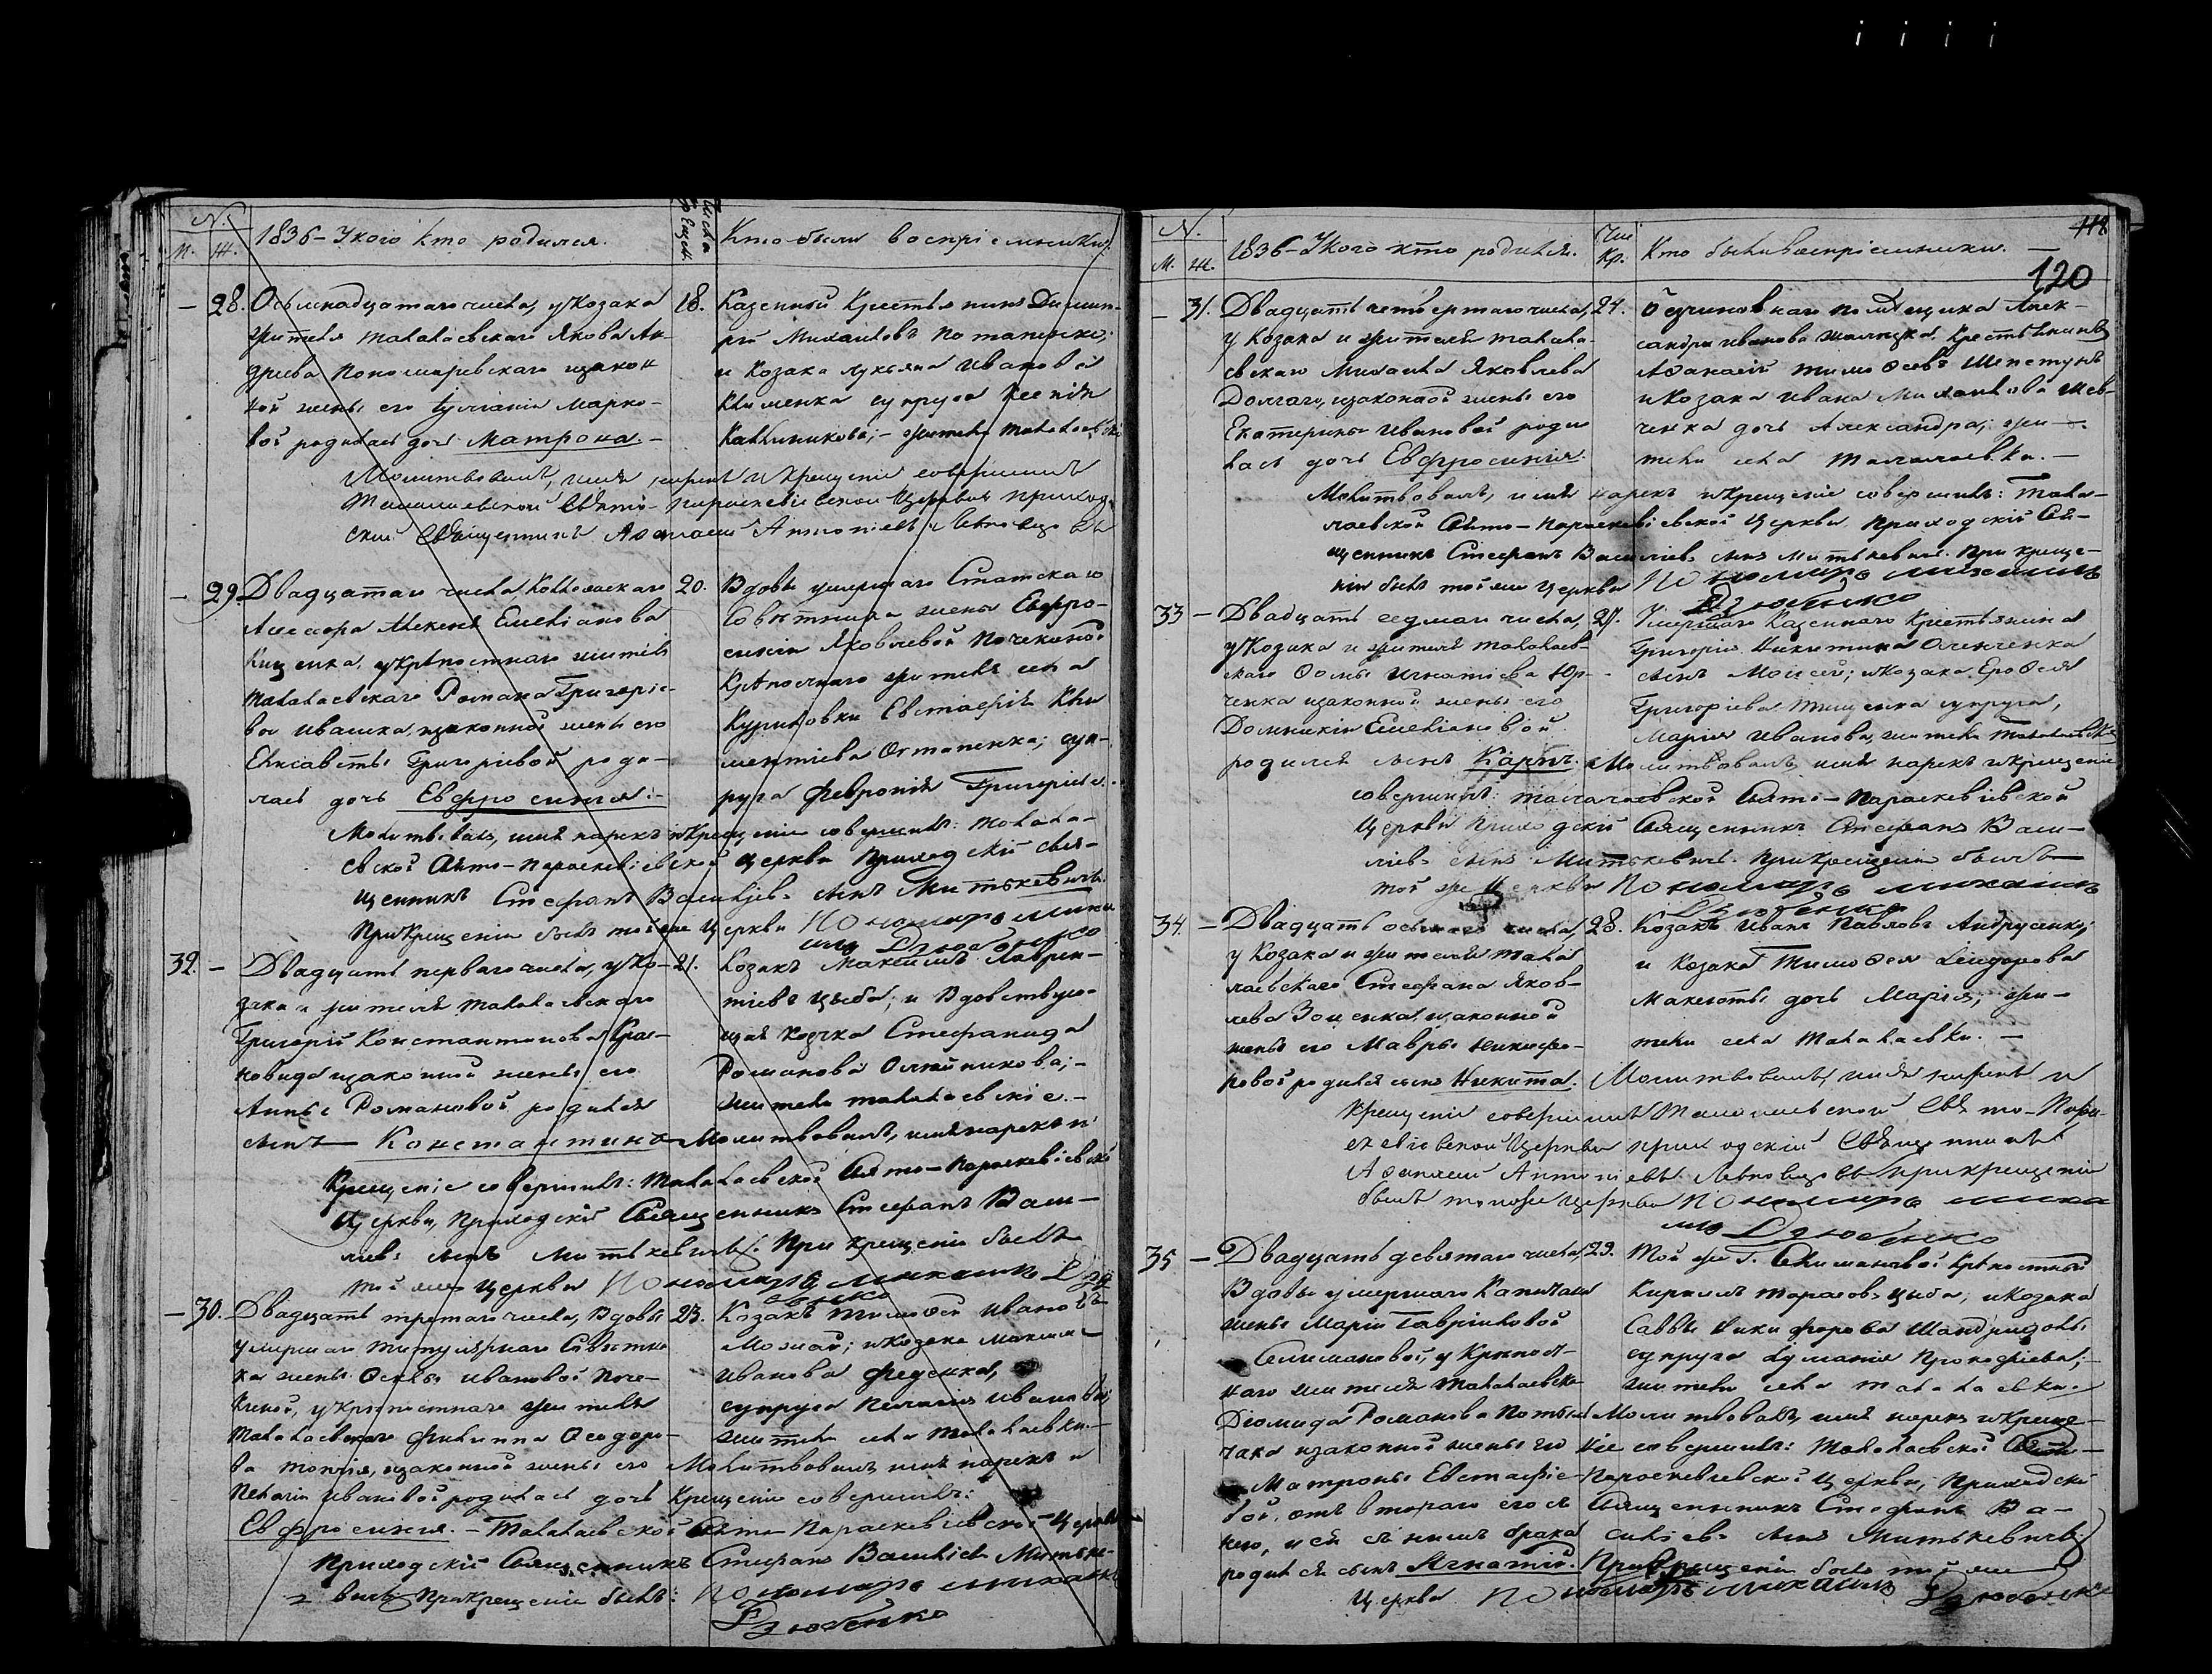 N.
М. Ж.
1836 – У кого кто родился.
Числа Крещен.
Кто были воспріемники.
– 28. Осьмнадцатаго числа, у Козака
жителя талалаевскаго Якова Ан-
дреева Пономаревскаго и закон
ной жены его Іуліаніи Марко-
вой родилась дочь Матрона. –
18. Казенный Крестьянинъ Димит-
рій Михаиловъ Потапенко;
и Козака Лукьяна Иванова
Клименка супруга Ксенія
Каллиникова; – жители талалаевскіе
Молитвовалъ, имя нарекъ и Крещеніе совершилъ
Талалаевской Свято-Параскевіевской Церкви приход-
скій Священникъ Афанасій Антоніевъ
– 29. Двадцатаго числа, Коллежскаго
Ассесора Алексея Емельянова
у крѣпостнаго жителя
талалаевскаго Романа Григоріе-
ва Ивашка, и законной жены его
Елисаветы Григоріевой роди-
лась дочь Евфросинія. –
20. Вдовы умершаго Статскаго
Совѣтника жены Евфро-
синіи Яковлевой Почекиной
Крѣпостнаго жителя села
Куриловки Евстафія Кли
ментіева Остапенка; суп-
руга Февронія Григоріева.
Молитвовалъ, имя нарекъ и Крещеніе совершилъ: талала-
евской Свято-Параскевіевской Церкви Приходскій Свя-
щенникъ Стефанъ Васильевъ сынъ Митькевичъ.
При Крещеніи былъ той же Церкви Пономарь Миха
илъ Дзюбенко
32. – Двадцать перваго числа, у Ко-
зака и жителя талалаевскаго
Григорія Константинова Крас-
новида и законной жены его
Анны Романовой родился
сынъ Константинъ
21. Козакъ Максимъ Лаврен-
тіевъ Цыба; и Вдовствую-
щая Козачка Стефанида
Романова Олейникова; –
жители талалаевскіе. –
Молитвовалъ, имя нарекъ и
Крещеніе совершилъ: Талалаевской Свято-Параскевіевской
Церкви, Приходскій Священникъ Стефанъ Васи-
ліевъ сынъ Митькевичъ. При Крещеніи былъ
той же Церкви Пономарь Михаилъ Дзю
бенко
– 30. Двадцать третяго числа, Вдовы
умершаго Титулярнаго Совѣтни
ка жены Феклы Ивановой Поче-
киной, у крѣпостнаго жителя
Талалаевскаго Филиппа Феодоро-
ва и законной жены его
Пелагіи Ивановой родилась дочь
Евфросинія. –
23. Козакъ Тимофей Ивановъ
Можай; и Козака Максима
Иванова Феденка,
супруга Пелагія Иванова;
жители села Талалаевки. –
Молитвовалъ, имя нарекъ и
Крещеніе совершилъ:
Талалаевской Свято Параскевіевской Церкви
Приходскій Священникъ Стефанъ Васильевъ Митьке-
вичъ При Крещеніи былъ: Пономарь Михаилъ
Дзюбенко
N.
М. Ж.
1836 – У кого кто родился.
Чис. Кр.
Кто были воспріемники. –
118
120
– 31. Двадцать четвертаго числа,
у Козака и жителя талала-
евскаго Михаила Яковлева
Долгаго, и законной жены его
Екатерины Ивановой роди
лась дочь Евфросинія.
24. помѣщика Алек-
сандра Иванова Крестьянинъ
Афанасій Тимофеевъ Шепетунъ
и Козака Ивана Михаилова Шев-
ченка дочь Александра; жи-
тели села Талалаевка. –
Молитвовалъ, имя нарекъ и Крещеніе совершилъ: Тала-
лаевской Свято-Параскевіевской Церкви Приходскій Свя-
щенникъ Стефанъ Васильевъ сынъ Митькевичъ. При Креще-
ніи былъ той же Церкви Пономарь Михаилъ
Дзюбенко
33 – Двадцать седмаго числа,
у Козака и жителя талалаев-
скаго Фомы Игнатіева Юр-
ченка и законной жены его
Домникіи Емельяновой
родился сынъ Карпъ.
27. Умершаго Казеннаго Крестьянина
Григорія Никитина Оленченка
сынъ Моисей; и Козака Ерофея
Григоріева Тищенка супруга,
Марія Иванова, жители талалаевскіе
Молитвовалъ, имя нарекъ и крещеніе
совершилъ: талалаевской Свято-Параскевіевской
Церкви Приходскій Священникъ Стефанъ Васи-
ліевъ сынъ Митькевичъ. При Крещеніи былъ
той же Церкви Пономарь Михаилъ
Дзюбенко
34. – Двадцать осьмаго числа,
у Козака и жителя тала
лаевскаго Стефана Яков-
лева Зоценка, и законной
жены его Мавры Никифо-
ровой родился сынъ Никита.
28. Козакъ Иванъ Павловъ Андрусенко;
и Козака Тимофея Сидорова
Маклоты дочь Марія; жи-
тели села Талалаевки. –
Молитвовалъ, имя нарекъ и
Крещеніе совершилъ Талалаевской Свято-Пара-
скевіевской Церкви приходскій Священникъ
Афанасій Антоніевъ при крещеніи
былъ той же Церкви Пономарь Миха
илъ Дзюбенко
35 – Двадцать девятаго числа,
Вдовы умершаго Капитана
жены Маріи Гавріиловой
Селимановой, у Крѣпост-
наго жителя Талалаевска
Діомида Романова
и законной жены его
Матроны Евстафіе-
вой, отъ втораго его съ
нею, и ей съ нимъ брака
родился сынъ Игнатій.
29. Той же Г. Селимановой Крѣпостный
Кириллъ Тарасовъ Цыба; и Козака
Саввы Никифорова
супруга Іуліанія Прокофіева; –
жители села талалаевки.
Молитвовалъ, имя нарекъ и Креще-
ніе совершилъ: Талалаевской Свято-
Параскевіевской Церкви, Приходскій
Священникъ Стефанъ Ва-
силіевъ сынъ Митькевичъ.
При Крещеніи былъ той же
Церкви Пономарь Михаилъ Дзюбенко